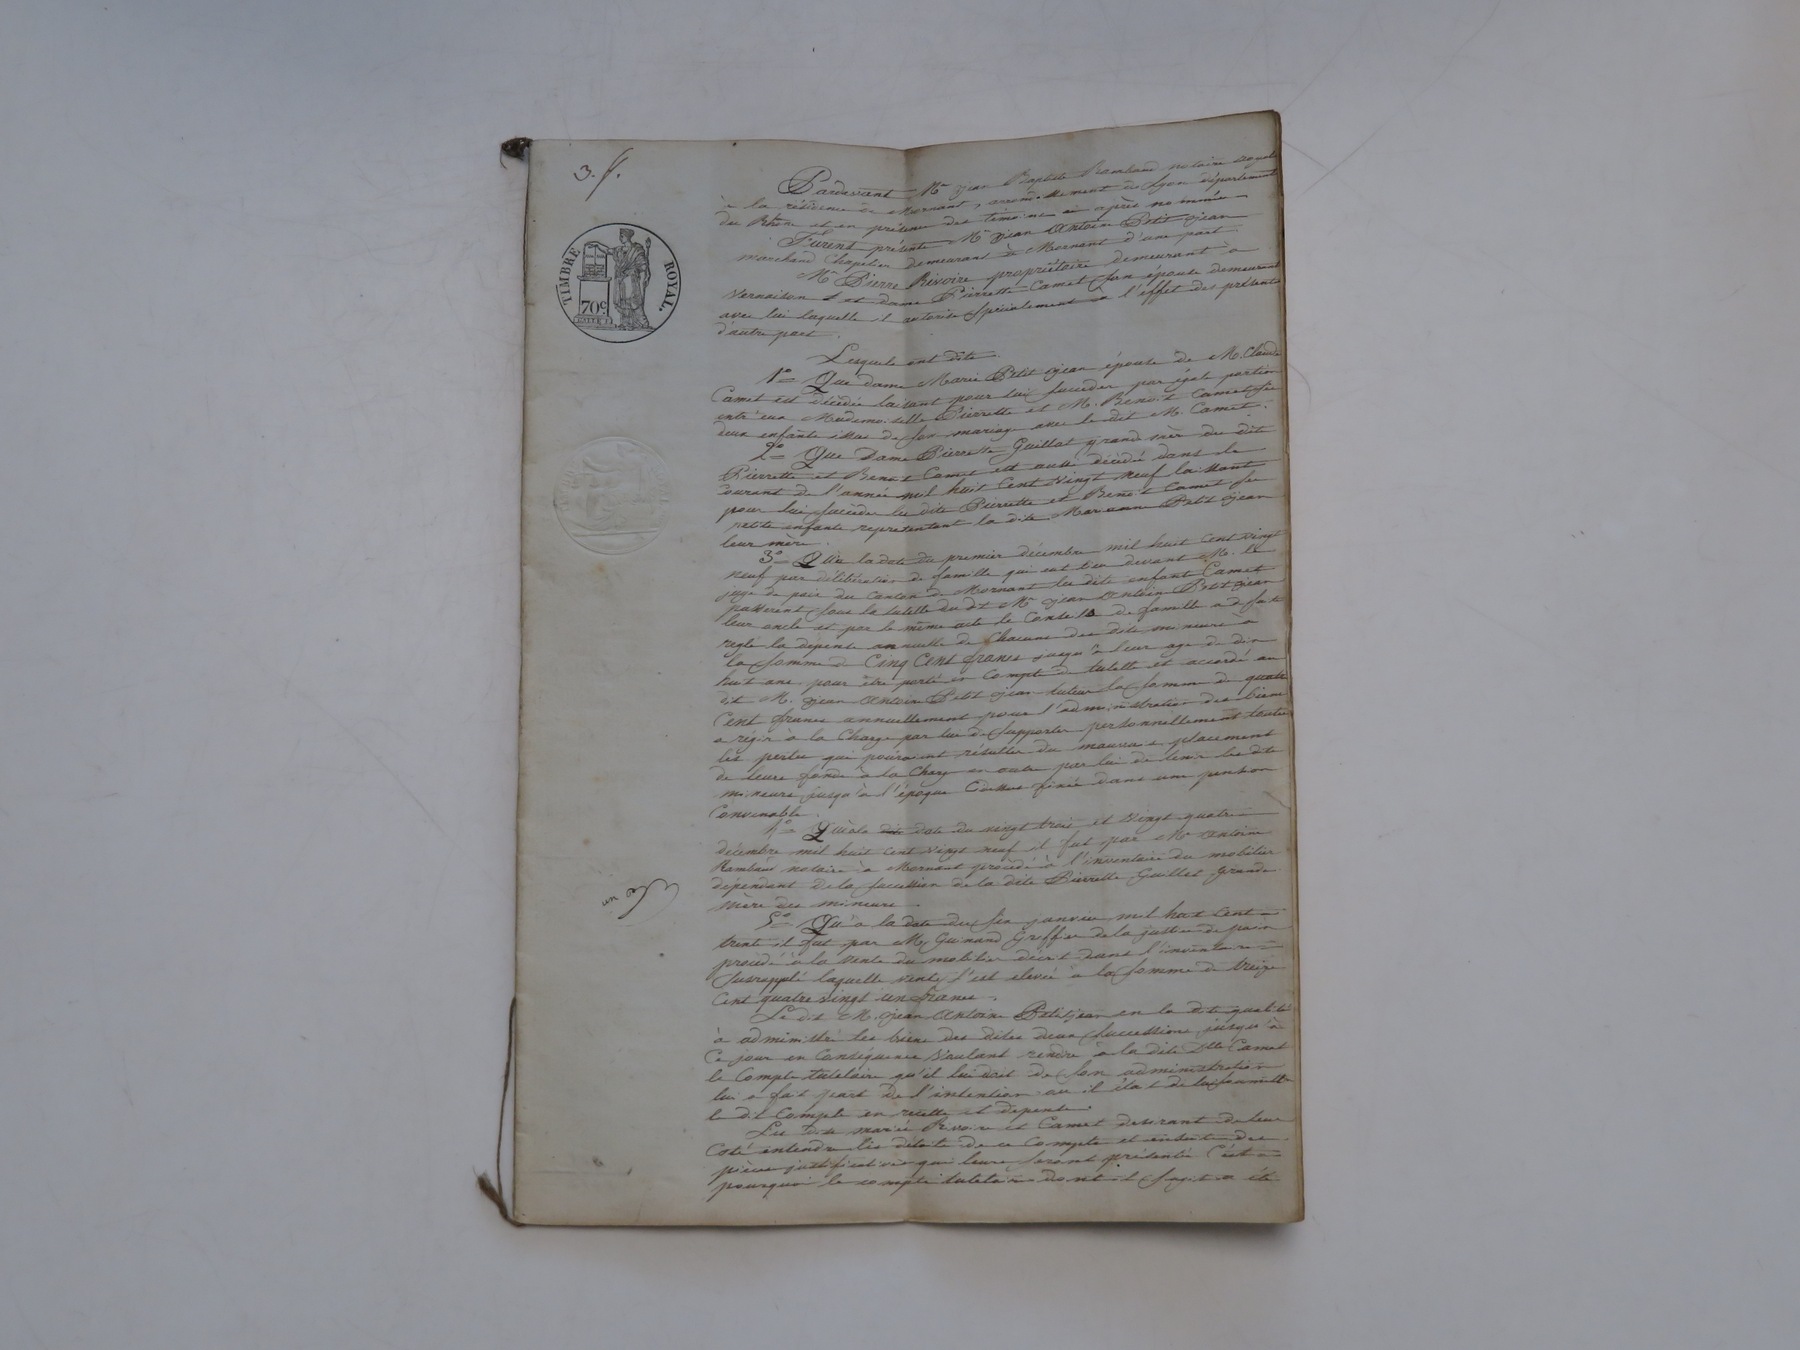 3. f.
TIMBRE ROYAL.
70c
Pardevant Me Jean Baptiste Rambaud notaire royal
à la résidence de Mornant, arrondissement de Lyon département
du Rhône et en présence des témoins ci après nommés
Furent présents Mr Jean Antoine Petit Jean
marchand Chapelier demeurant à Mornant d'une part.
Mr Pierre Revoire propriétaire demeurant à
Vernaison et dame Pierrette Camet son épouse demeurant
avec lui laquelle il autorise spécialement à l'effet des présentes
d'autre part.
Lesquels ont dits
1o Que dame Marie Petit Jean épouse de M. Claude
Camet est décédée laissant pour lui succéder par égale portion
entr'eux Mademoiselle Pierrette et M. Benoit Camet ses
deux enfants issus de son mariage avec le dit M. Camet.
2o Que Dame Pierrette Guillat grand mère des dits
Pierrette et Benoit Camet est aussi décédé dans le
courant de l'année mil huit cent vingt neuf laissant
pour lui succéder les dits Pierrette et Benoit Camet ses
petits enfants représentant la dite Marianne Petit Jean
leur mère.
3o Qu'à la date du premier décembre mil huit cent vingt
neuf par délibération de famille qui eut lieu devant M. le
juge de paix du canton de Mornant les dits enfants Camet
passerent sous la tutelle du dt Mr Jean Antoine Petit Jean
leur oncle et par le même acte le Conseil de famille a
réglé la dépense annuelle de Chacun des dits mineurs à
la somme de Cinq Cent francs jusqu'à leur age de dix
huit ans pour être porté en Compte de tutelle et accordé au
dit M. Jean Antoine Petit Jean tuteur la somme de quatre
Cent francs annuellement pour l'administration des biens
a régir à la Charge par lui de supporter personnellement toutes
les pertes qui pouroient résulter du mauvais placement
de leurs fonds à la Charge en outre par lui de tenir les dits
mineurs jusqu'à l'époque Cidessus fixée dans une pension
Convenable.
4o Qu'à la date du vingt trois et vingt quatre
décembre mil huit cent vingt neuf il fut par Me Antoine
Rambaud notaire à Mornant procédé à l'inventaire du mobilier
dépendant de la succession de la dite Pierrette Guillat grande
mère des mineurs.
5o Qu'à la date du six janvier mil huit cent
trente il fut par M. Guinand Greffier de la justice de paix
procédé à la vente du mobilier décrit dans l'inventaire
susrappelé laquelle vente s'est elevée à la somme de treize
Cent quatre vingt un francs.
Le dit M. Jean Antoine Petitjean en la dite qualité
à administré les biens des dites deux successions jusqu'à
Ce jour en Conséquence Voulant rendre à la dite Dlle Camet
le Compte tutelaire qu'il lui doit de son administration
lui a fait part de l'intention ou il était de lui soumettre
le dit Compte en recette et dépense.
Les dits mariés Revoire et Camet désirant de leur
Coté entendre les détails de ce Compte et ensuite des
pièces justificatives qui leurs seront présentés C'est
pourquoi le compte tutelaire dont il s'agit a été